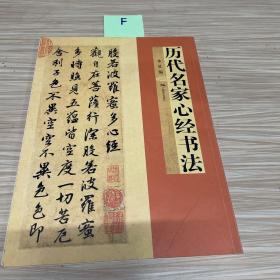 F
历代名家心经书法
般若波羅蜜多心經
觀自在菩薩行深般若波羅蜜
多時照見五蘊皆空度一切苦厄
舍利子色不異空空不異色色即